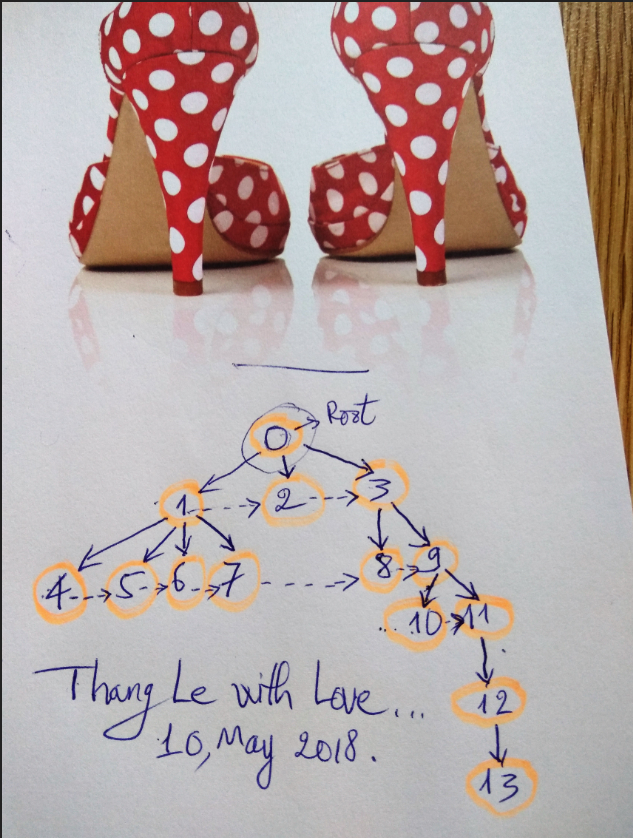 Root
0
1 2 3
4 5 6 7 8 9
... 10 11
12
13
Thang Le with Love...
10, May 2018.